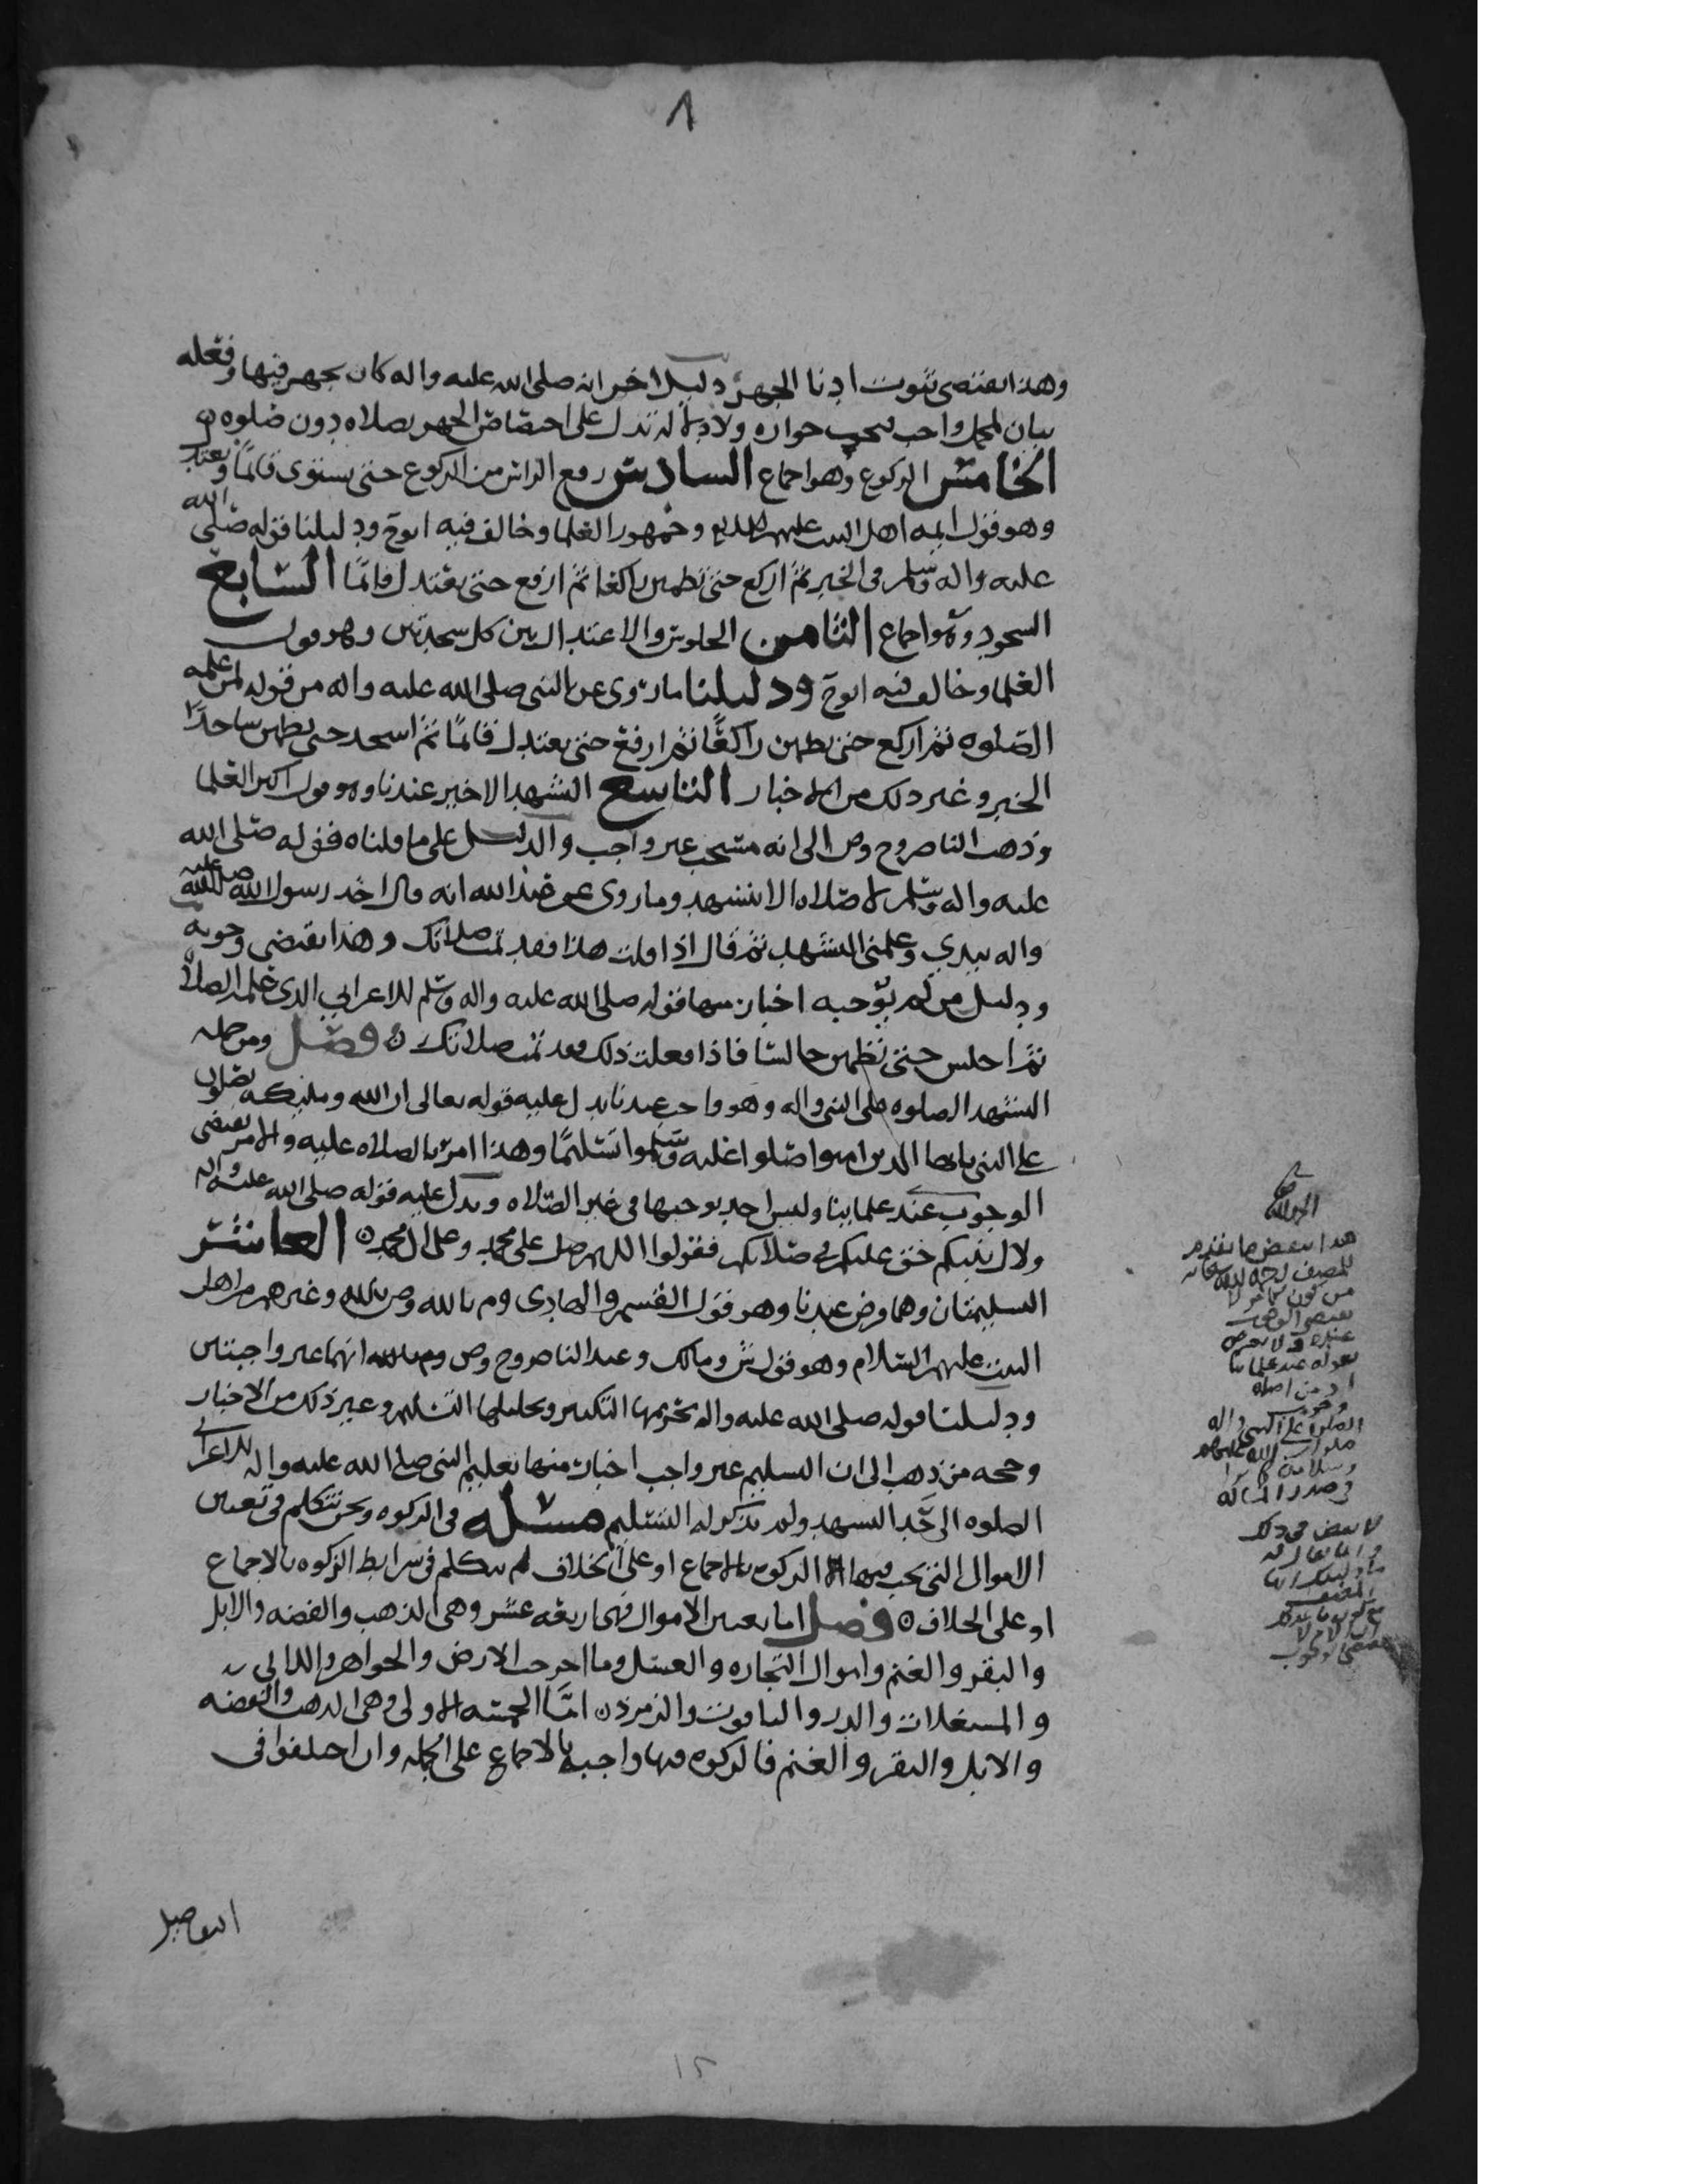 ٨
وهذا يقتضي ثبوت ادنا الجهر دليل اخر انه صلى الله عليه واله كان يجهر فيها وفعله
بيان لمجمل واجب فيجب جوازه ولا دلالة تدل على اختصاص الجهر بصلاه دون صلوه ن
الخامس الركوع وهو اجماع السادس رفع الراس من الركوع حتى يستوى قائما ويعتدل
وهو قول ايمه اهل البيت عليهم السلام وجمهور العلما وخالف فيه ابوح ودليلنا قوله صلى الله
عليه واله وسلم في الخبر ثم اركع حتى تطمين راكعا ثم ارفع حتى يعتدل قائما السابع
السجود وهو اجماع الثامن الجلوس والاعتدال بين كل سجدتين وهو قول
العلما وخالف فيه ابوح ودليلنا ما روى عن النبي صلى الله عليه واله من قوله لمن علمه
الصلوه ثم اركع حتى يطمين راكعا ثم ارفع حتى يعتدل قائما ثم اسجد حتى يطمين ساجدا
الخبر وغير ذلك من الاخبار التاسع التشهد الاخير عندنا وهو قول اكثر العلما
وذهب الناصر وح وص الى انه مستحب غير واجب والدليل على ما قلناه فقوله صلى الله
عليه واله وسلم لا صلاه الا بتشهد وما روى عن عبد الله انه قال اخذ رسول الله صلى الله عليه
واله بيدي وعلمنى التشهد ثم قال اذا قلت هذا فقد تمت صلاتك وهذا يقتضى وجوبه
ودليل من لم يوجبه اخبار منها قوله صلى الله عليه واله وسلم للاعرابي الذى علمه الصلاة
ثم اجلس حتى تطمين جالسا فاذا فعلت ذلك فقد تمت صلاتك ن فصل ومن جمله
التشهد الصلوه على النبي واله وهو واجب عندنا يدل عليه قوله تعالى ان الله وملئكته يصلون
على النبي يايها الذين امنوا صلوا عليه وسلموا تسليما وهذا امر بالصلاه عليه والامر يقتضى
الوجوب عند علمائنا وليس احد يوجبها في غير الصلاه ويدل عليه قوله صلى الله عليه واله
ولال نبيكم حق عليكم في صلاتكم فقولوا اللهم صل على محمد وعلى ال محمد ن العاشر
التسليمتان وهما فرض عندنا وهو قول القسم والهادى وم بالله وص بالله وغيرهم من اهل
البيت عليهم السلام وهو قول ش ومالك وعند الناصر وح وص وم بالله انهما غير واجبتين
ودليلنا قوله صلى الله عليه واله تحريمها التكبير وتحليلها التسليم وغير ذلك من الاخبار
وحجه من ذهب الى ان التسليم غير واجب اخبار منها تعليم النبي صلى الله عليه واله للاعرابي
الصلوه الى حد التشهد ولم يذكر له التسليم مسئله في الزكوه ونحن نتكلم في تعيين
الاموال التي يجب فيها الزكوه بالاجماع او على الخلاف ثم نتكلم في شرايط الزكوه بالاجماع
او على الخلاف ن فصل اما تعيين الاموال فهى اربعه عشر وهى الذهب والفضه والابل
والبقر والغنم واموال التجاره والعسل وما اخرجت الارض والجواهر واللالي
والمستغلات والدر والياقوت والزمرذ ن امّا الخمسه الاولى وهى الذهب والفضه
والابل والبقر والغنم فالزكوه فيها واجبه بالاجماع على الجمله وان اختلفوا في
التفاصيل
هذا ينقض ما تقدم
للمصنف رحمه الله
عند علمائنا
الصلوه على النبي واله
في صدر المساله
١٢